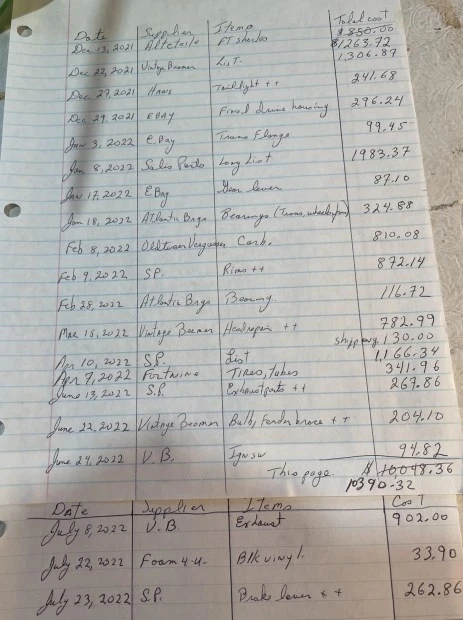 Date Supplier Items Total cost
Dec 13, 2021 FT shocks $850.00
$1263.72
Dec 22, 2021 Vintage Beemer List. 1,306.87
Dec 27, 2021 Taillight ++ 241.68
Dec 29, 2021 EBAY Final drive housing 296.24
Jan 3, 2022 e.Bay Trans Flange 99.45
Jan 8, 2022 Salis Parts Long List 1983.37
Jan 17, 2022 E Bay Gear lever 87.10
Jan 18, 2022 Atlantic Brgs Bearings (Trans, 324.88
Feb 8, 2022 Carb. 810.08
Feb 9, 2022 SP. Rims ++ 872.14
Feb 28, 2022 Atlantic Brgs Bearing 116.72
Mar 15, 2022 Vintage Beemer Head repair ++ 782.99
shipping 130.00
Apr 10, 2022 S.P. List 1,166.34
Apr 7, 2022 Fortnine Tires, tubes 341.96
June 13, 2022 S.P. Exhaust parts ++ 267.86
June 22, 2022 Vintage Beemer Bulb, Fender brace ++ 204.10
June 24, 2022 V.B. Ign sw 94.82
This page $10048.36
10390.32
Date Supplier Items Cost
July 8, 2022 V.B. Exhaust 902.00
July 22, 2022 Foam 4-U. Blk vinyl. 33.90
July 23, 2022 S.P. Brake lever ++ 262.86